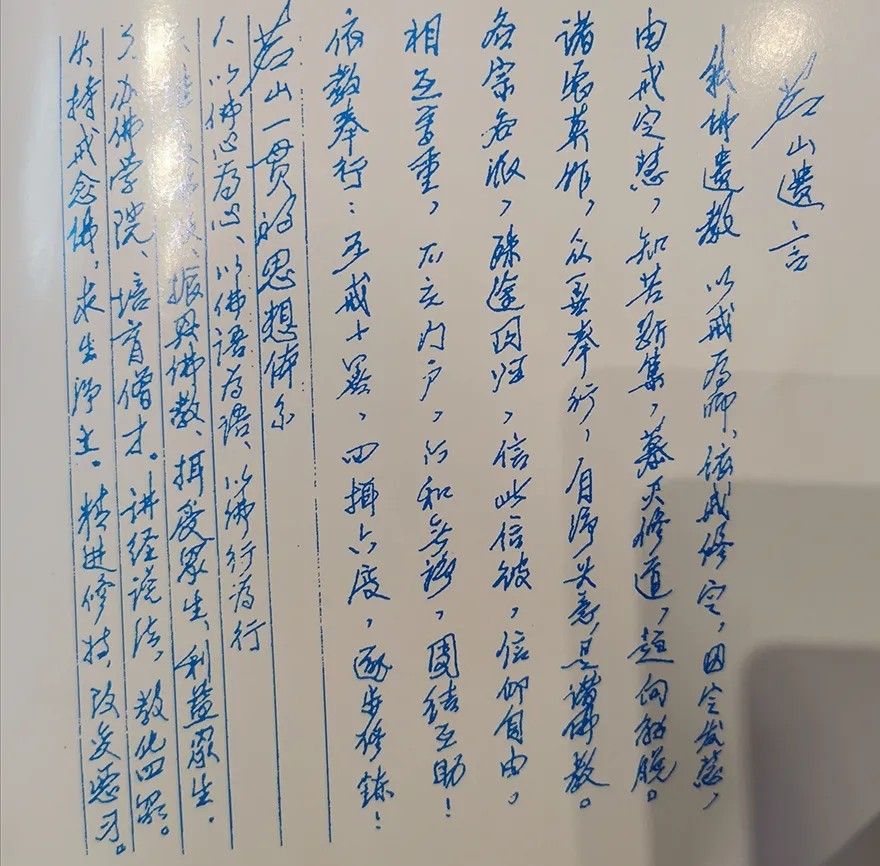 茗山遗言
我佛遗教，以戒为师，依戒修定，因定发慧，
由戒定慧，知苦断集，慕灭修道，趋向解脱。
诸恶莫作，众善奉行，自净其意，是诸佛教。
各宗各派，殊途同归，信此信彼，信仰自由。
相互尊重，不立门户，六和无诤，团结互助！
依教奉行：五戒十善，四摄六度，逐步修录！
茗山一贯的思想体系
1、以佛心为心、以佛语为语、以佛行为行
振兴佛教、摄受众生、利益众生。
3、办佛学院、培育僧才。讲经说法，教化四众。
4、持戒念佛，求生净土。精进修持，改变恶习。